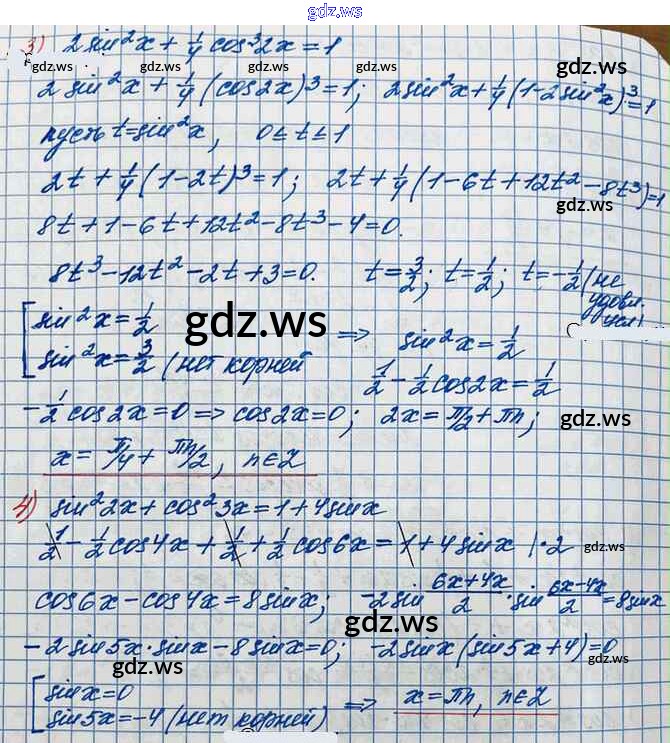 gdz.ws
3) 2sin²x + 1/4 cos³2x = 1
gdz.ws gdz.ws gdz.ws gdz.ws
2sin²x + 1/4 (cos2x)³ = 1; 2sin²x + 1/4 (1-2sin²x)³ = 1
пусть t = sin²x, 0 ≤ t ≤ 1
2t + 1/4 (1-2t)³ = 1; 2t + 1/4 (1-6t+12t²-8t³) = 1
gdz.ws
8t + 1 - 6t + 12t² - 8t³ - 4 = 0.
8t³ - 12t² - 2t + 3 = 0. t = 3/2; t = 1/2; t = -1/2 (не удовл. усл)
[ sin²x = 1/2
sin²x = 3/2 (нет корней => sin²x = 1/2
gdz.ws
1/2 - 1/2 cos2x = 1/2
-1/2 cos2x = 0 => cos2x = 0; 2x = π/2 + πn;
gdz.ws
x = π/4 + πn/2, n∈Z
4) sin²2x + cos²3x = 1 + 4sinx
1/2 - 1/2 cos4x + 1/2 + 1/2 cos6x = 1 + 4sinx | ·2
gdz.ws
cos6x - cos4x = 8sinx; -2sin (6x+4x)/2 · sin (6x-4x)/2 = 8sinx
gdz.ws
-2sin5x·sinx - 8sinx = 0; -2sinx(sin5x+4) = 0
gdz.ws gdz.ws
[ sinx = 0
sin5x = -4 (нет корней) => x = πn, n∈Z
gdz.ws gdz.ws